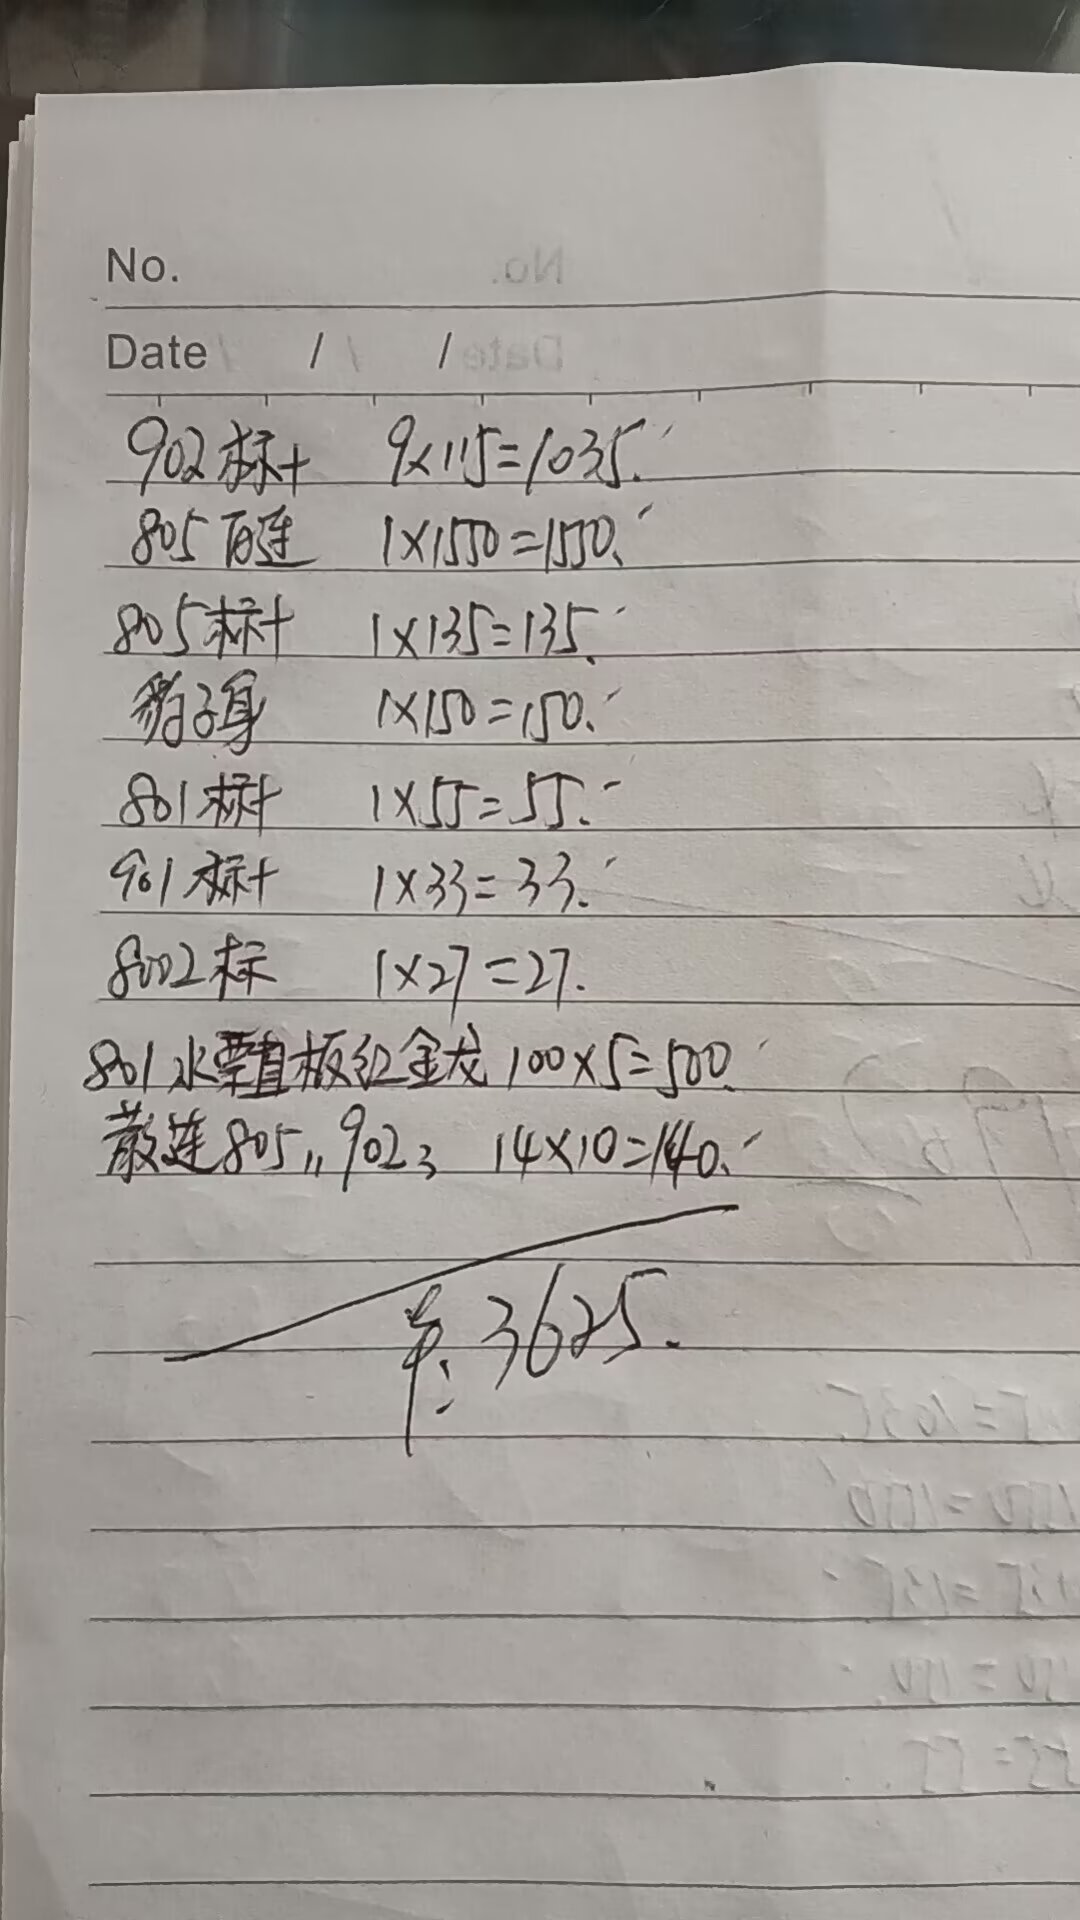 No.
Date / /
902标十 9×115=1035.
805百连 1×1550=1550.
805标十 1×135=135.
豹子号 1×150=150.
801标十 1×55=55.
901标十 1×33=33.
8002标 1×27=27.
801水票直板红金龙 100×5=500.
散连805,,902, 14×10=140.
3625.